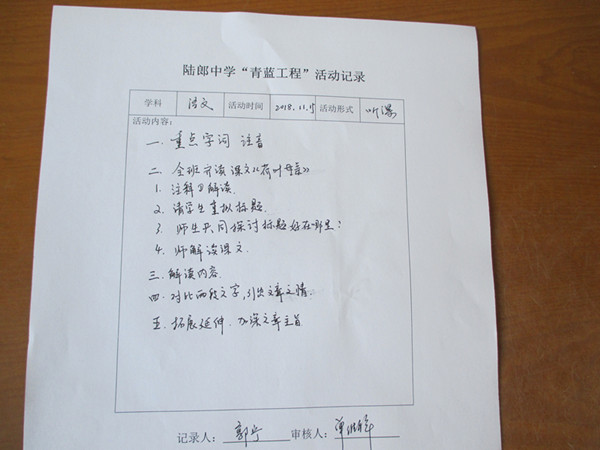 陆郎中学“青蓝工程”活动记录
学科 语文 活动时间 2018.11.15 活动形式 听课
活动内容：
一、重点字词 注音
二、全班齐读课文《荷叶母亲》
1. 注释①解读.
2. 请学生重拟标题.
3. 师生共同探讨标题好在哪里?
4. 师解读课文.
三、解读内容.
四、对比两段文字,引出文章之情.
五、拓展延伸、加深文章主旨
记录人： 郭宁 审核人： 单